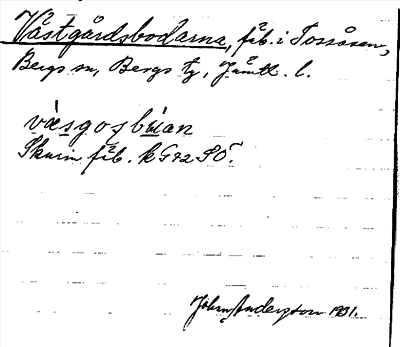 Västgårdsbodarna, fäb. i Tossåsen,
Bergs sn, Bergs tg, Jämtl. l.
väsgosbúan
Skurin fäb. k G72 SÖ.
John Anderzton 1931.